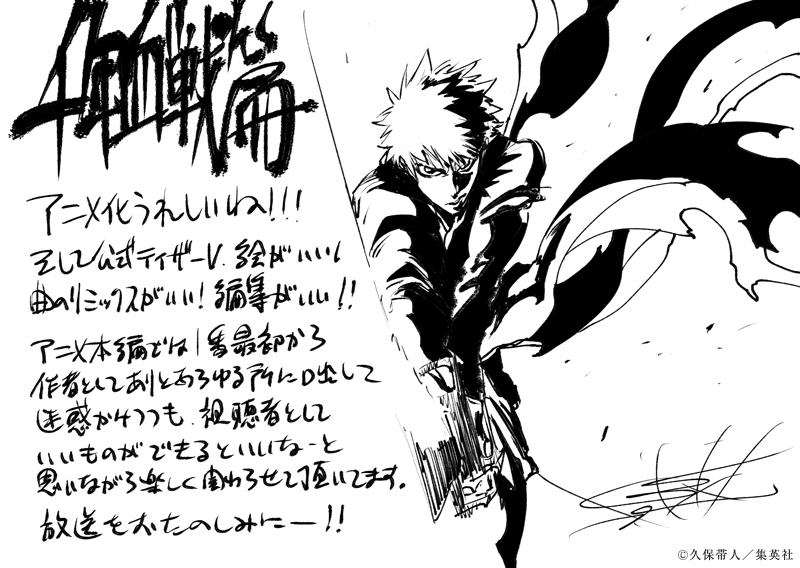 千年血戦篇
アニメ化うれしいね!!!
そして公式ティザーV.絵がいい!
曲のリミックスがいい!編集がいい!!
アニメ本編では1番最初から
作者としてありとあらゆる所に口出して
迷惑かけつつも、視聴者として
いいものができるといいなーと
思いながら楽しく関わらせて頂いてます。
放送をおたのしみにー!!
©久保帯人／集英社